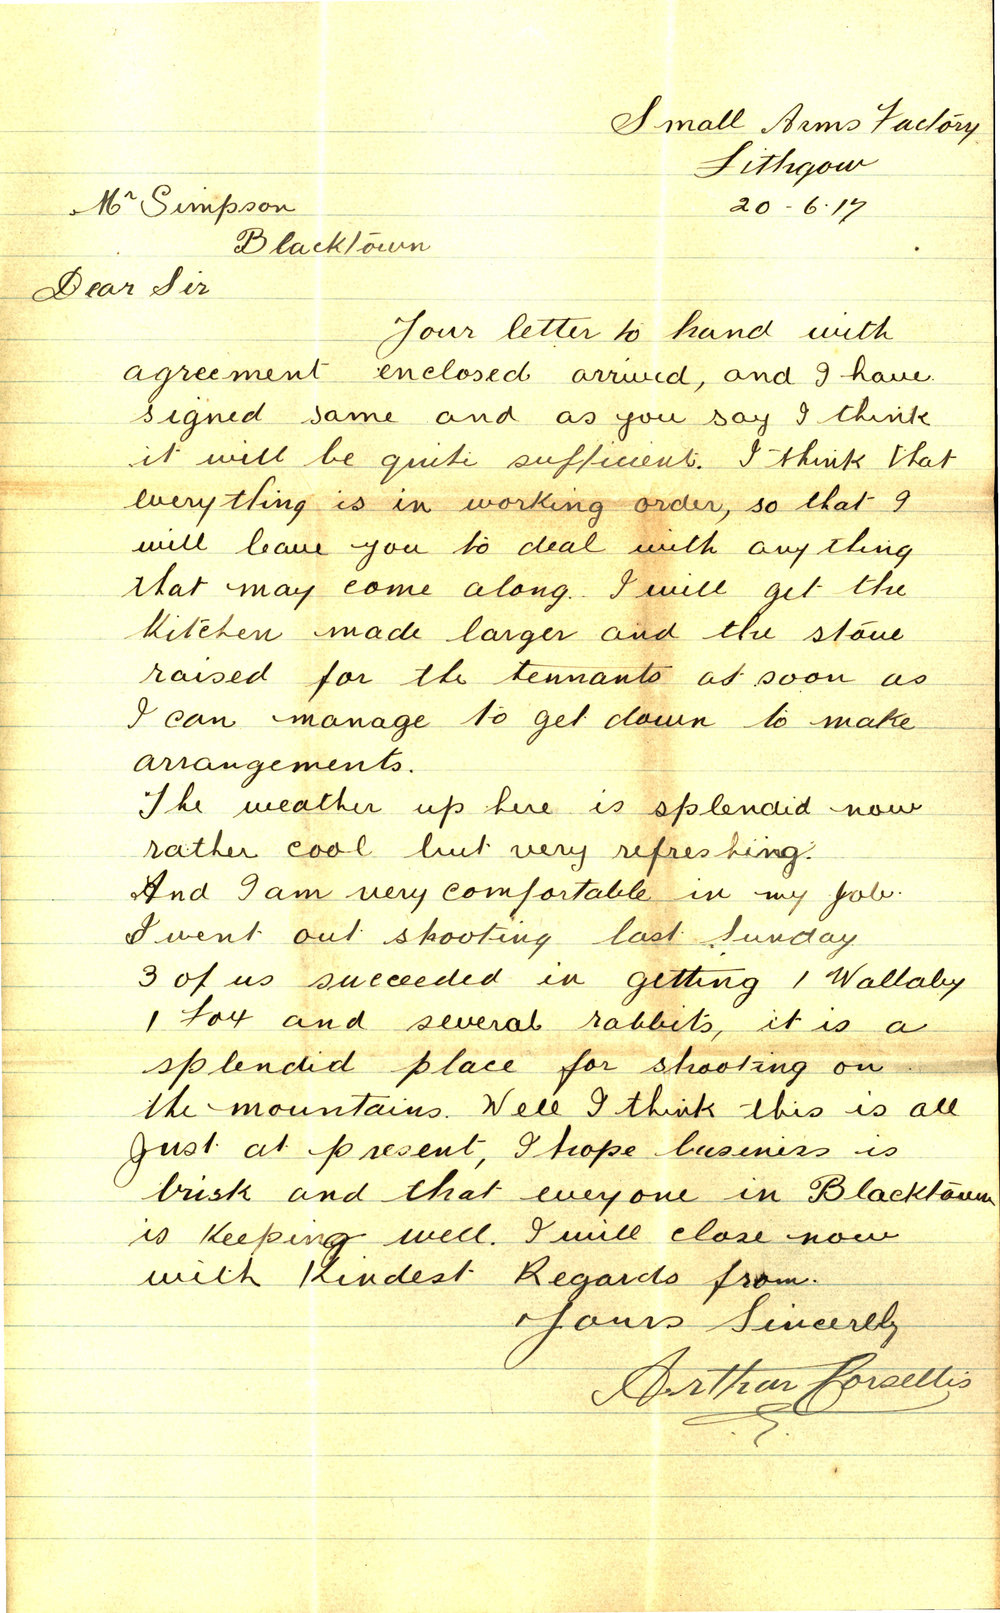 Small Arms Factory
Lithgow
20 - 6. 17
Mr Simpson
Blacktown
Dear Sir
Your letter to hand with
agreement enclosed arrived, and I have
signed same and as you say I think
it will be quite sufficient. I think that
everything is in working order, so that I
will leave you to deal with anything
that may come along. I will get the
Kitchen made larger and the stove
raised for the tennants as soon as
I can manage to get down to make
arrangements.
The weather up here is splendid now
rather cool but very refreshing.
And I am very comfortable in my job.
I went out shooting last Sunday
3 of us succeeded in getting 1 Wallaby
1 fox and several rabbits, it is a
splendid place for shooting on
the mountains. Well I think this is all
Just at present, I hope business is
brisk and that everyone in Blacktown
is Keeping well. I will close now
with Kindest Regards from.
Yours Sincerely
Arthur Corsellis